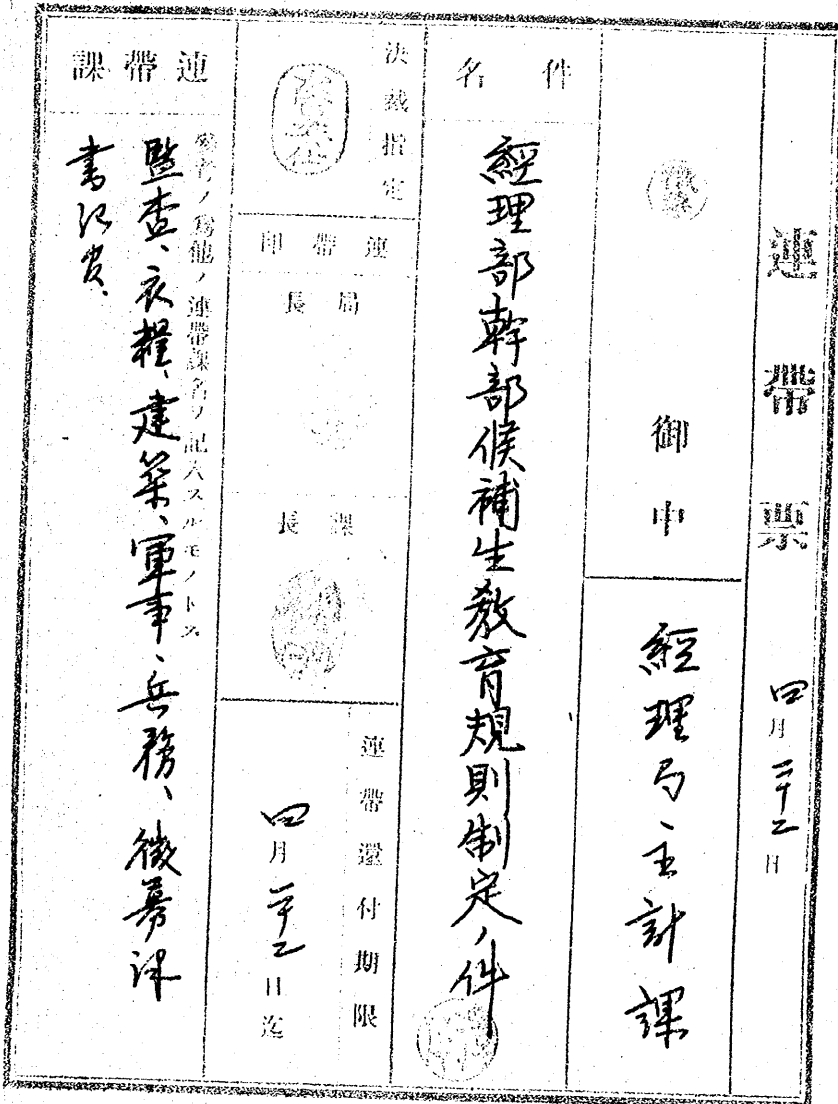 連帶票
四月二十二日
御中
經理局主計課
件名
經理部幹部候補生教育規則制定ノ件
決裁指定
連帶印
局長
課長
連帶還付期限
四月二十二日迄
連帶課
參考ノ爲他ノ連帶課名ヲ記入スルモノトス
監査、衣糧、建築、軍事、兵務、徵募課
書記官、